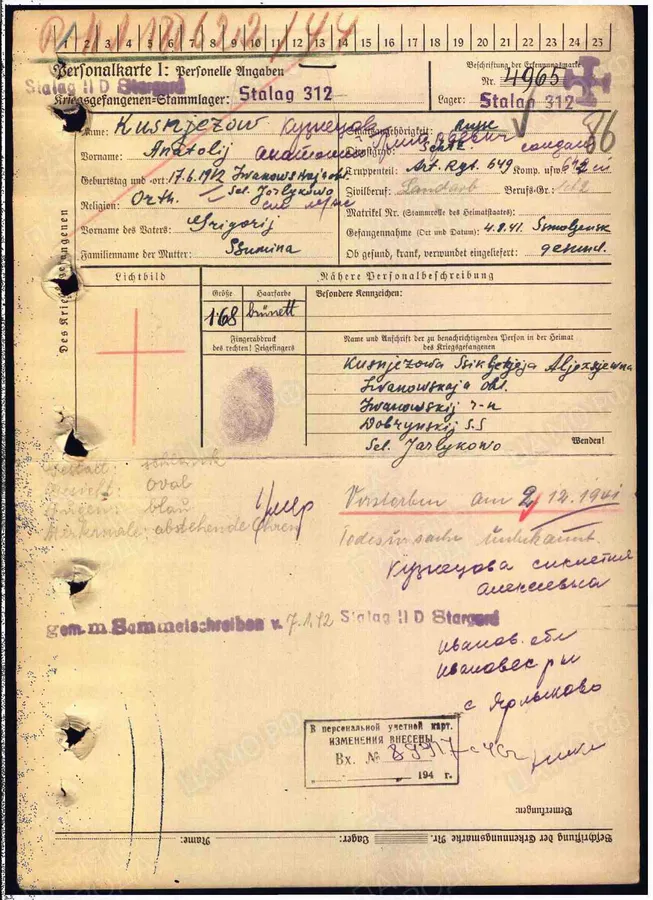 1 2 3 4 5 6 7 8 9 10 11 12 13 14 15 16 17 18 19 20 21 22 23 24 25
Personalkarte I: Personelle Angaben
Stalag II D Stargard
Kriegsgefangenen-Stammlager: Stalag 312
Beschriftung der Erkennungsmarke
Nr. 4965
Lager: Stalag 312
86
Des Kriegsgefangenen
Name: Kusnjezow Кузнецов
Vorname: Anatolij Анатолий
Geburtstag und -ort: 17.6.1912
Sel. Jarlykowo
Religion: Orth.
Vorname des Vaters: Grigorij
Familienname der Mutter:
Staatsangehörigkeit: russ.
Dienstgrad: солдат
Truppenteil: Art. Rgt. 649 Komp. usw.
Zivilberuf: Landarb. Berufs-Gr.:
Matrikel Nr. (Stammrolle des Heimatstaates):
Gefangennahme (Ort und Datum): 4.8.41. Smoljensk
Ob gesund, krank, verwundet eingeliefert: gesund.
Lichtbild
Nähere Personalbeschreibung
Größe Haarfarbe Besondere Kennzeichen:
1.68 brünett
Fingerabdruck
des rechten! Zeigefingers
Name und Anschrift der zu benachrichtigenden Person in der Heimat
des Kriegsgefangenen
Kusnjezowa Aljexejewna
Iwanowskaja obl.
Iwanowskij r-n
Dobrynskij S.S
Sel. Jarlykowo
Wenden!
Gestalt: schlank
Gesicht: oval
Augen: blau
Merkmale: abstehende Ohren
Умер
Verstorben am 2.12.1941
Todesursache unbekannt.
Кузнецова
Алексеевна
gem. m. Sammelschreiben v. 7.1.42 Stalag II D Stargard
Иванов. обл
с Ярлыково
В персональной учетной карт.
ИЗМЕНЕНИЯ ВНЕСЕНЫ
Вх. №
194 г.
Bemerkungen:
Beschriftung der Erkennungsmarke Nr. Lager: Name: